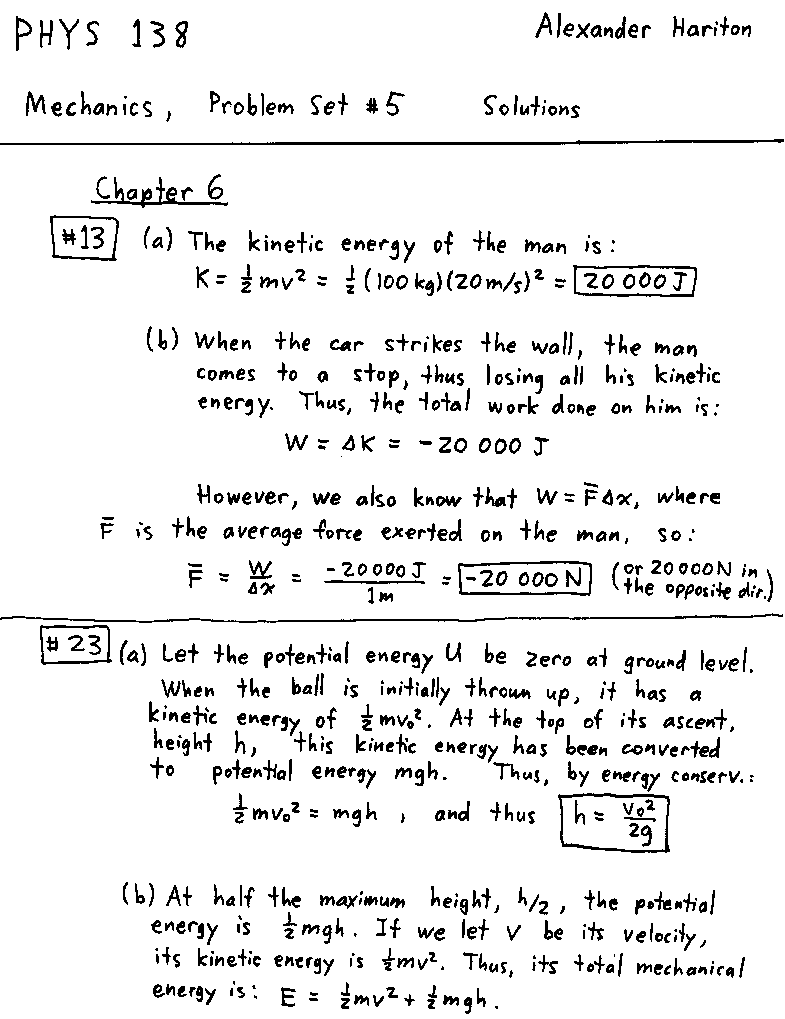 PHYS 138 Alexander Hariton
Mechanics, Problem Set #5 Solutions
Chapter 6
#13 (a) The kinetic energy of the man is:
K = ½mv² = ½(100 kg)(20 m/s)² = 20 000 J
(b) When the car strikes the wall, the man
comes to a stop, thus losing all his kinetic
energy. Thus, the total work done on him is:
W = ΔK = -20 000 J
However, we also know that W = F̄Δx, where
F̄ is the average force exerted on the man, so:
F̄ = W/Δx = -20 000 J/1m = -20 000 N (or 20 000N in the opposite dir.)
#23 (a) Let the potential energy U be zero at ground level.
When the ball is initially thrown up, it has a
kinetic energy of ½mv₀². At the top of its ascent,
height h, this kinetic energy has been converted
to potential energy mgh. Thus, by energy conserv.:
½mv₀² = mgh , and thus h = v₀²/2g
(b) At half the maximum height, h/2, the potential
energy is ½mgh. If we let v be its velocity,
its kinetic energy is ½mv². Thus, its total mechanical
energy is: E = ½mv² + ½mgh.